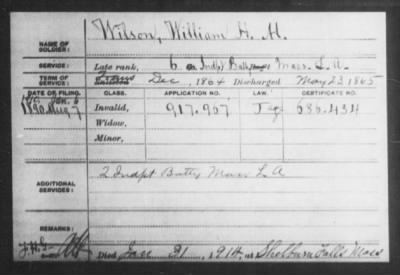 NAME OF SOLDIER: Wilson, William H. H.
SERVICE: Late rank, 6 Indpt Batty Mass. L. A.
TERM OF SERVICE: Dec, 1864 Discharged May 23 1865
DATE OF FILING. CLASS. APPLICATION NO. LAW. CERTIFICATE NO.
1890 Aug 7 Invalid, 917.957 686.434
Widow,
Minor,
ADDITIONAL SERVICES: 2 Indpt Batty Mass L A
REMARKS:
Died 31, 1914, at Shelburn Falls Mass